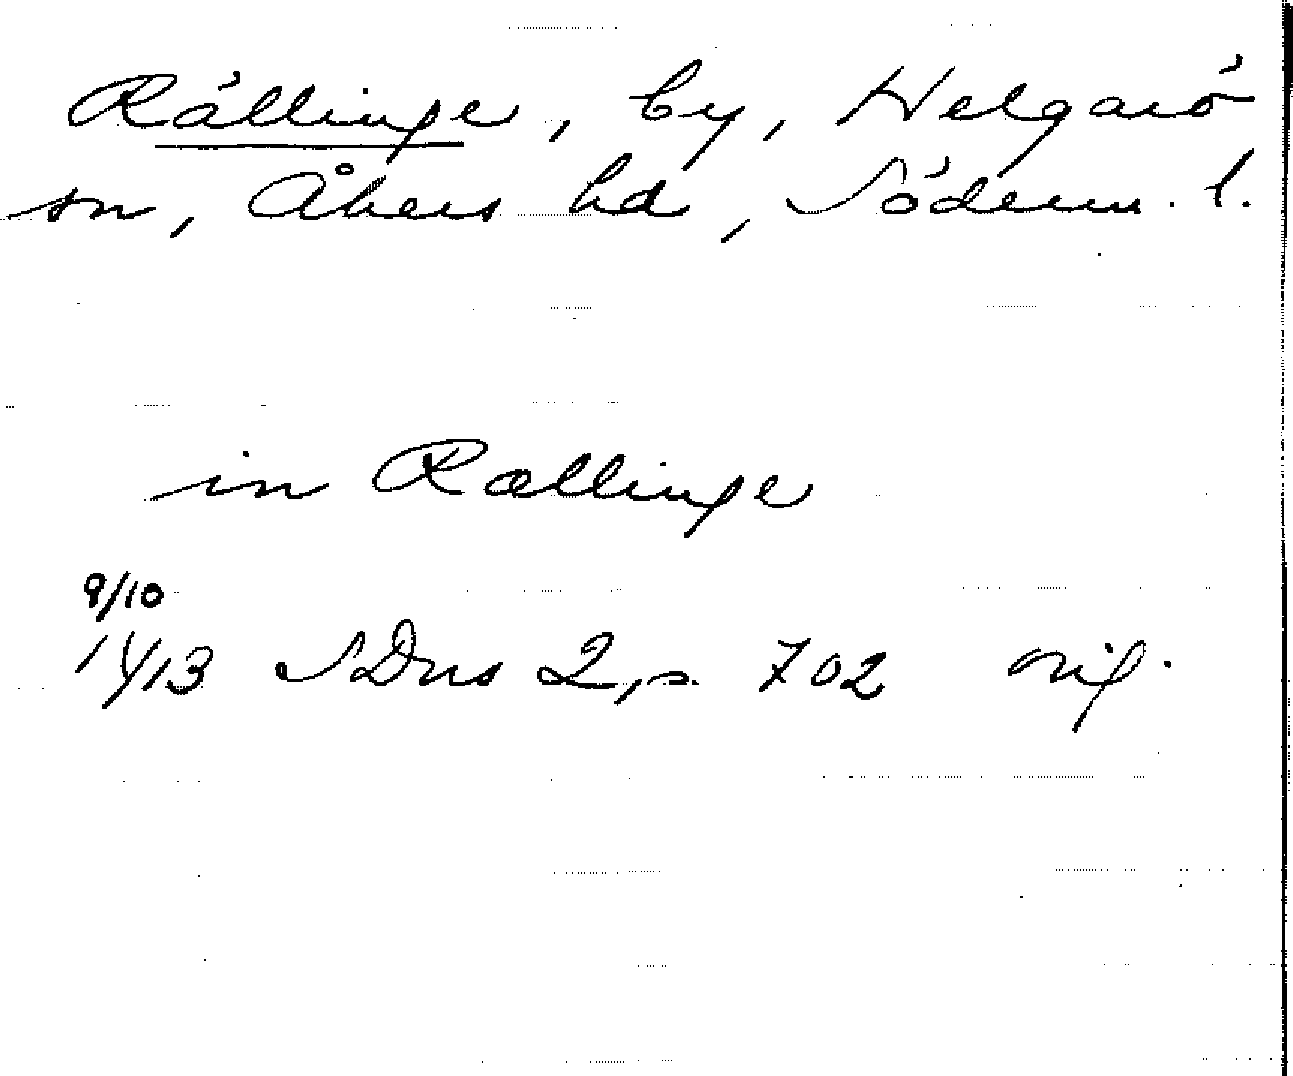 Rällinge, by, Helgarö
sn, Åkers hd, Söderm. l.
in Rællinge
9/10
14/13 SDns 2, s. 702 orig.